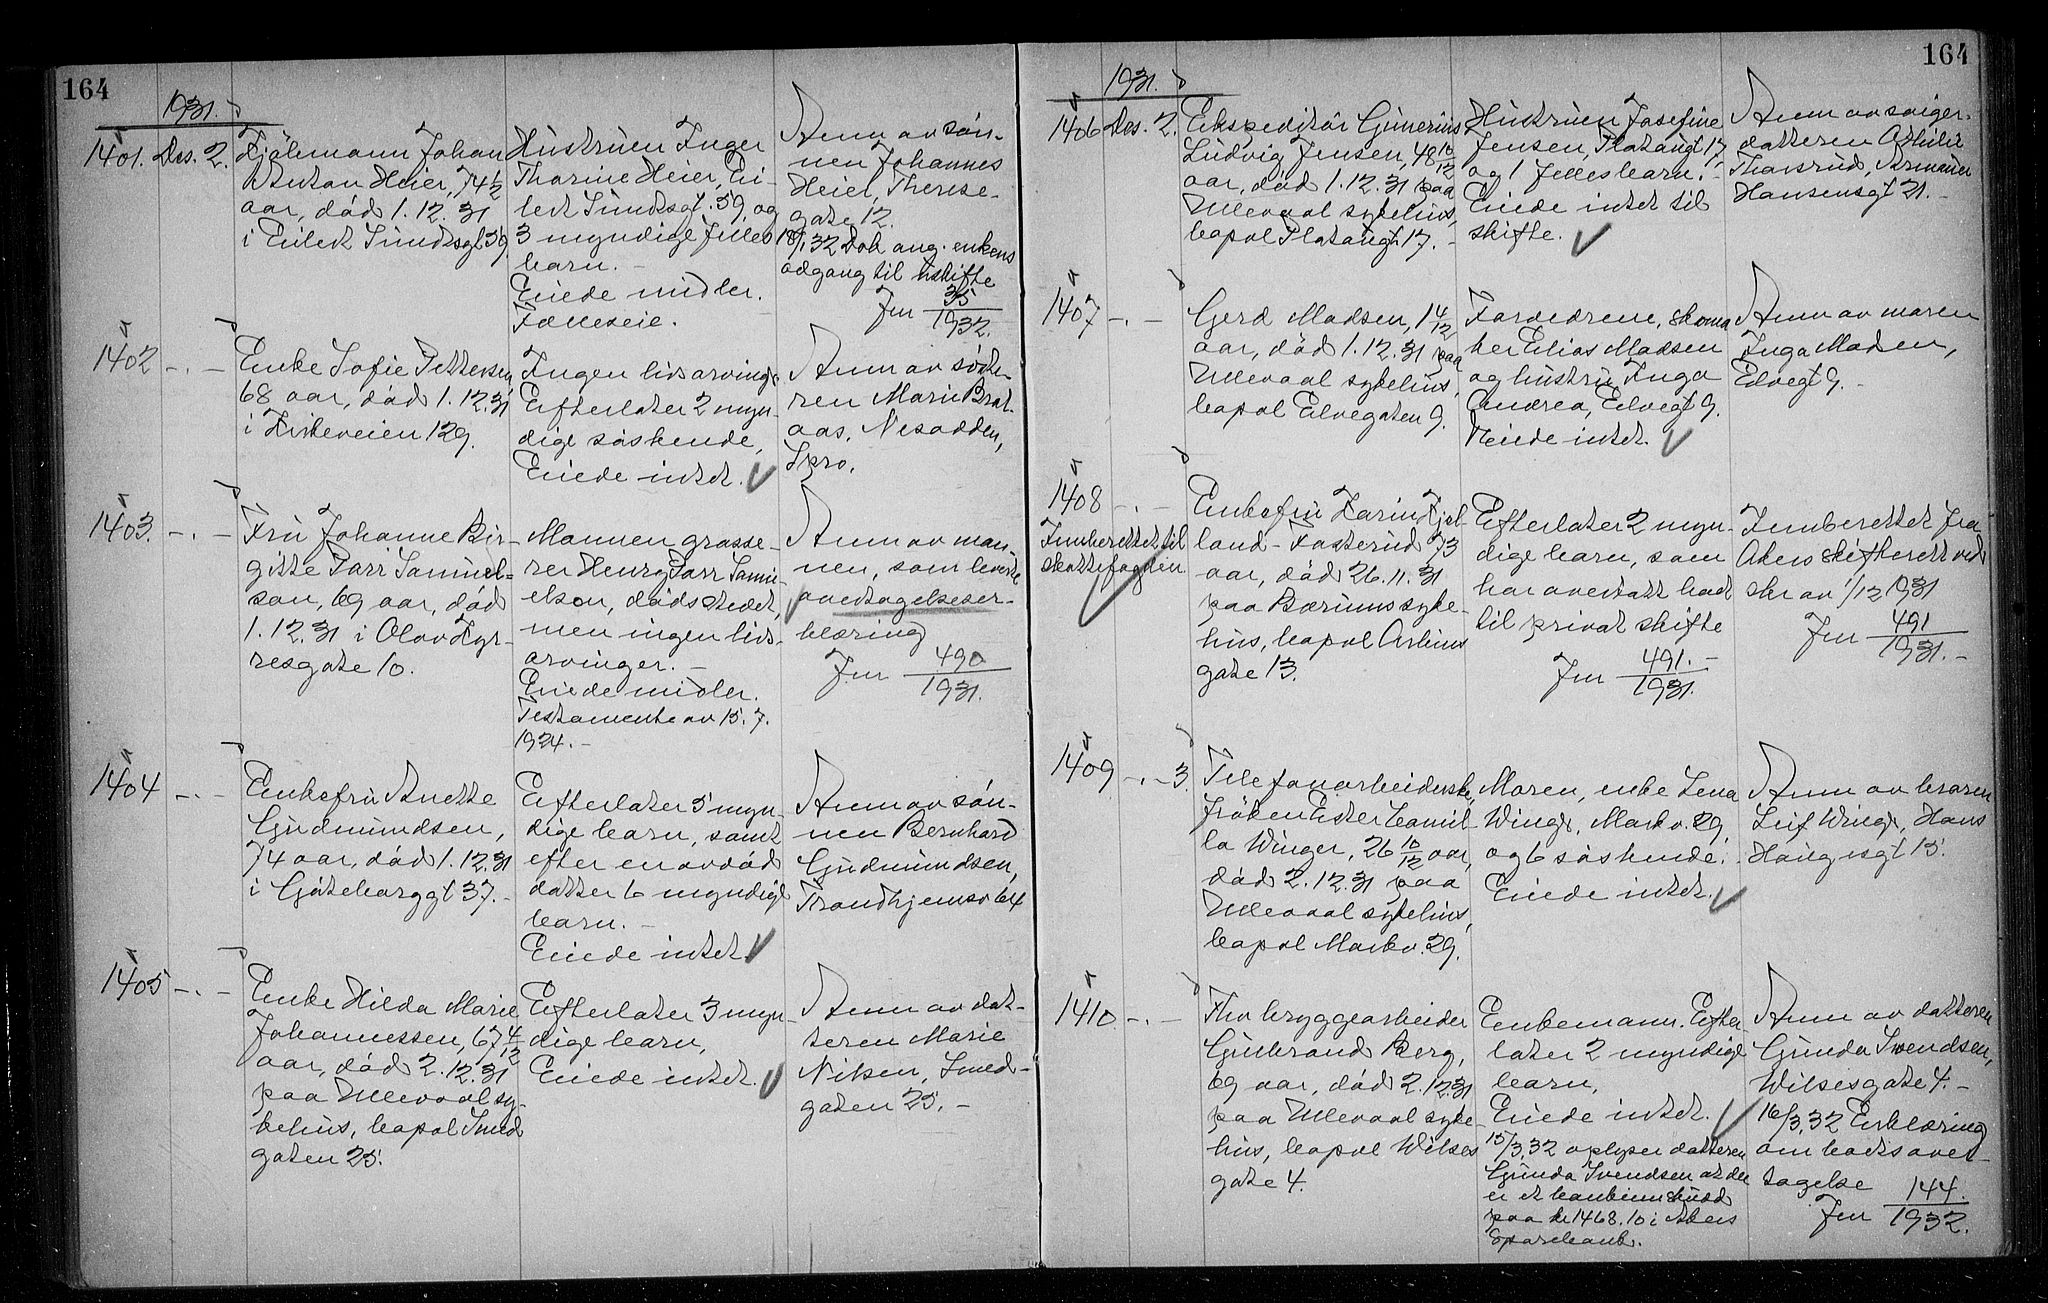 164
1931.
1401. Des. 2.
Fjölemann Johan
Anton Heier, 74 1/2
aar, död 1.12.31
i Eilert Sundtsgt. 59.
Hustruen Inger
Thorine Heier, Ei-
lert Sundtsgt. 59, og
3 myndige felles
barn. -
Eiede midler.
Fælleseie.
Anm av søn-
nen Johannes
Heier, Therese-
gate 12.
18/1.32 Dok ang. enkens
adgang til uskifte
Jnr 35/1932.
1402 -.-
Enke Sofie Pettersen
68 aar, död 1.12.31
i Kirkeveien 129.
Ingen livsarving.
Efterlater 2 myn-
dige söskende,
Eiede intet.
Anm av søste-
ren Marie Brat-
aas, Nesodden,
Spro.
1403. -.-
Fru Johanne Bir-
gitte Parr Samuel=
son, 69 aar, död
1.12.31 i Olav Kyr-
resgate 10.
Mannen grosse-
rer Henry Parr Samu-
elson, dödsstedet,
men ingen livs-
arvinger. -
Eiede midler.
Testamente av 15.7.
1924. -
Anm av man-
nen, som leverte
overtagelseser-
klæring
Jnr 490/1931.
1404 -.-
Enkefru Anette
Gudmundsen,
74 aar, död 1.12.31
i Göteborggt 37. -
Efterlater 5 myn-
dige barn, samt
efter en avdöd
datter 6 myndige
barn. -
Eiede intet
Anm av søn-
nen Bernhard
Gudmundsen,
Trondhjemsv 64
1405 -.-
Enke Hilda Marie
Johannessen, 67 4/12
aar, död 2.12.31
paa Ullevaal sy-
kehus, bopæl Smed
gaten 25.
Efterlater 3 myn
dige barn,
Eiede intet.
Anm av dat-
teren Marie
Nilsen, Smed-
gaten 25. -
164
1931.
1406 Des. 2.
Ekspeditör Gunerius
Ludvig Jensen, 48 10/12
aar, död 1.12.31 paa
Ullevaal sykehus,
bopæl Platougt. 17. -
Hustruen Josefine
Jensen, Platougt 17,
og 1 felles barn. -
Eiede intet til
skifte.
Anm av sviger-
datteren Othilie
Thorsrud, Armauer
Hansensgt 21. -
1407 -.-
Gerd Madsen, 1 4/12
aar, död 1.12.31 paa
Ullevaal sykehus,
bopæl Elvegaten 9.
Forældrene, skoma
ker Elias Madsen
og hustru Inga
Andrea, Elvegt 9.
Neiede intet.
Anm av moren
Inga Madsen,
Elvegt 9. -
1408 -.-
Innberettet til
skattefogden
Enkefru Karin Kjel-
land-Fosterud 73
aar, död 26.11.31
paa Bærums syke-
hus, bopæl Arbins
gate 13.
Efterlater 2 myn-
dige barn, som
har overtatt boet
til privat skifte
Jnr 491.-/1931.
Innberettet fra
Akers skifterett ved
skr av 1/12 1931
Jnr 491/1931. -
1409 -.- 3.
Telefonarbeiderske,
fröken Ester Camil-
la Winger, 26 10/12 aar,
död 2.12.31 paa
Ullevaal sykehus,
bopæl Markv. 29.
Moren, enke Lena
Winge, Markv. 29,
og 6 söskende. -
Eiede intet.
Anm av broren
Leif Winge, Hans
Haugesgt 15.
1410 -.-
Fhv bryggearbeider
Gulbrand Berg,
69 aar, död 2.12.31
paa Ullevaal syke-
hus, bopæl Wilses
gate 4.
Enkemann. Efter-
later 2 myndige
barn.
Eiede intet.
15/3.32 oplyser datteren
Gunda Svendsen at der
er et bankinnskudd
paa kr 1468.10 i Akers
Sparebank.
Anm av datteren
Gunda Svendsen,
Wilsesgate 4. -
16/3.32 Erklæring
om boets over-
tagelse
Jnr 144./1932.